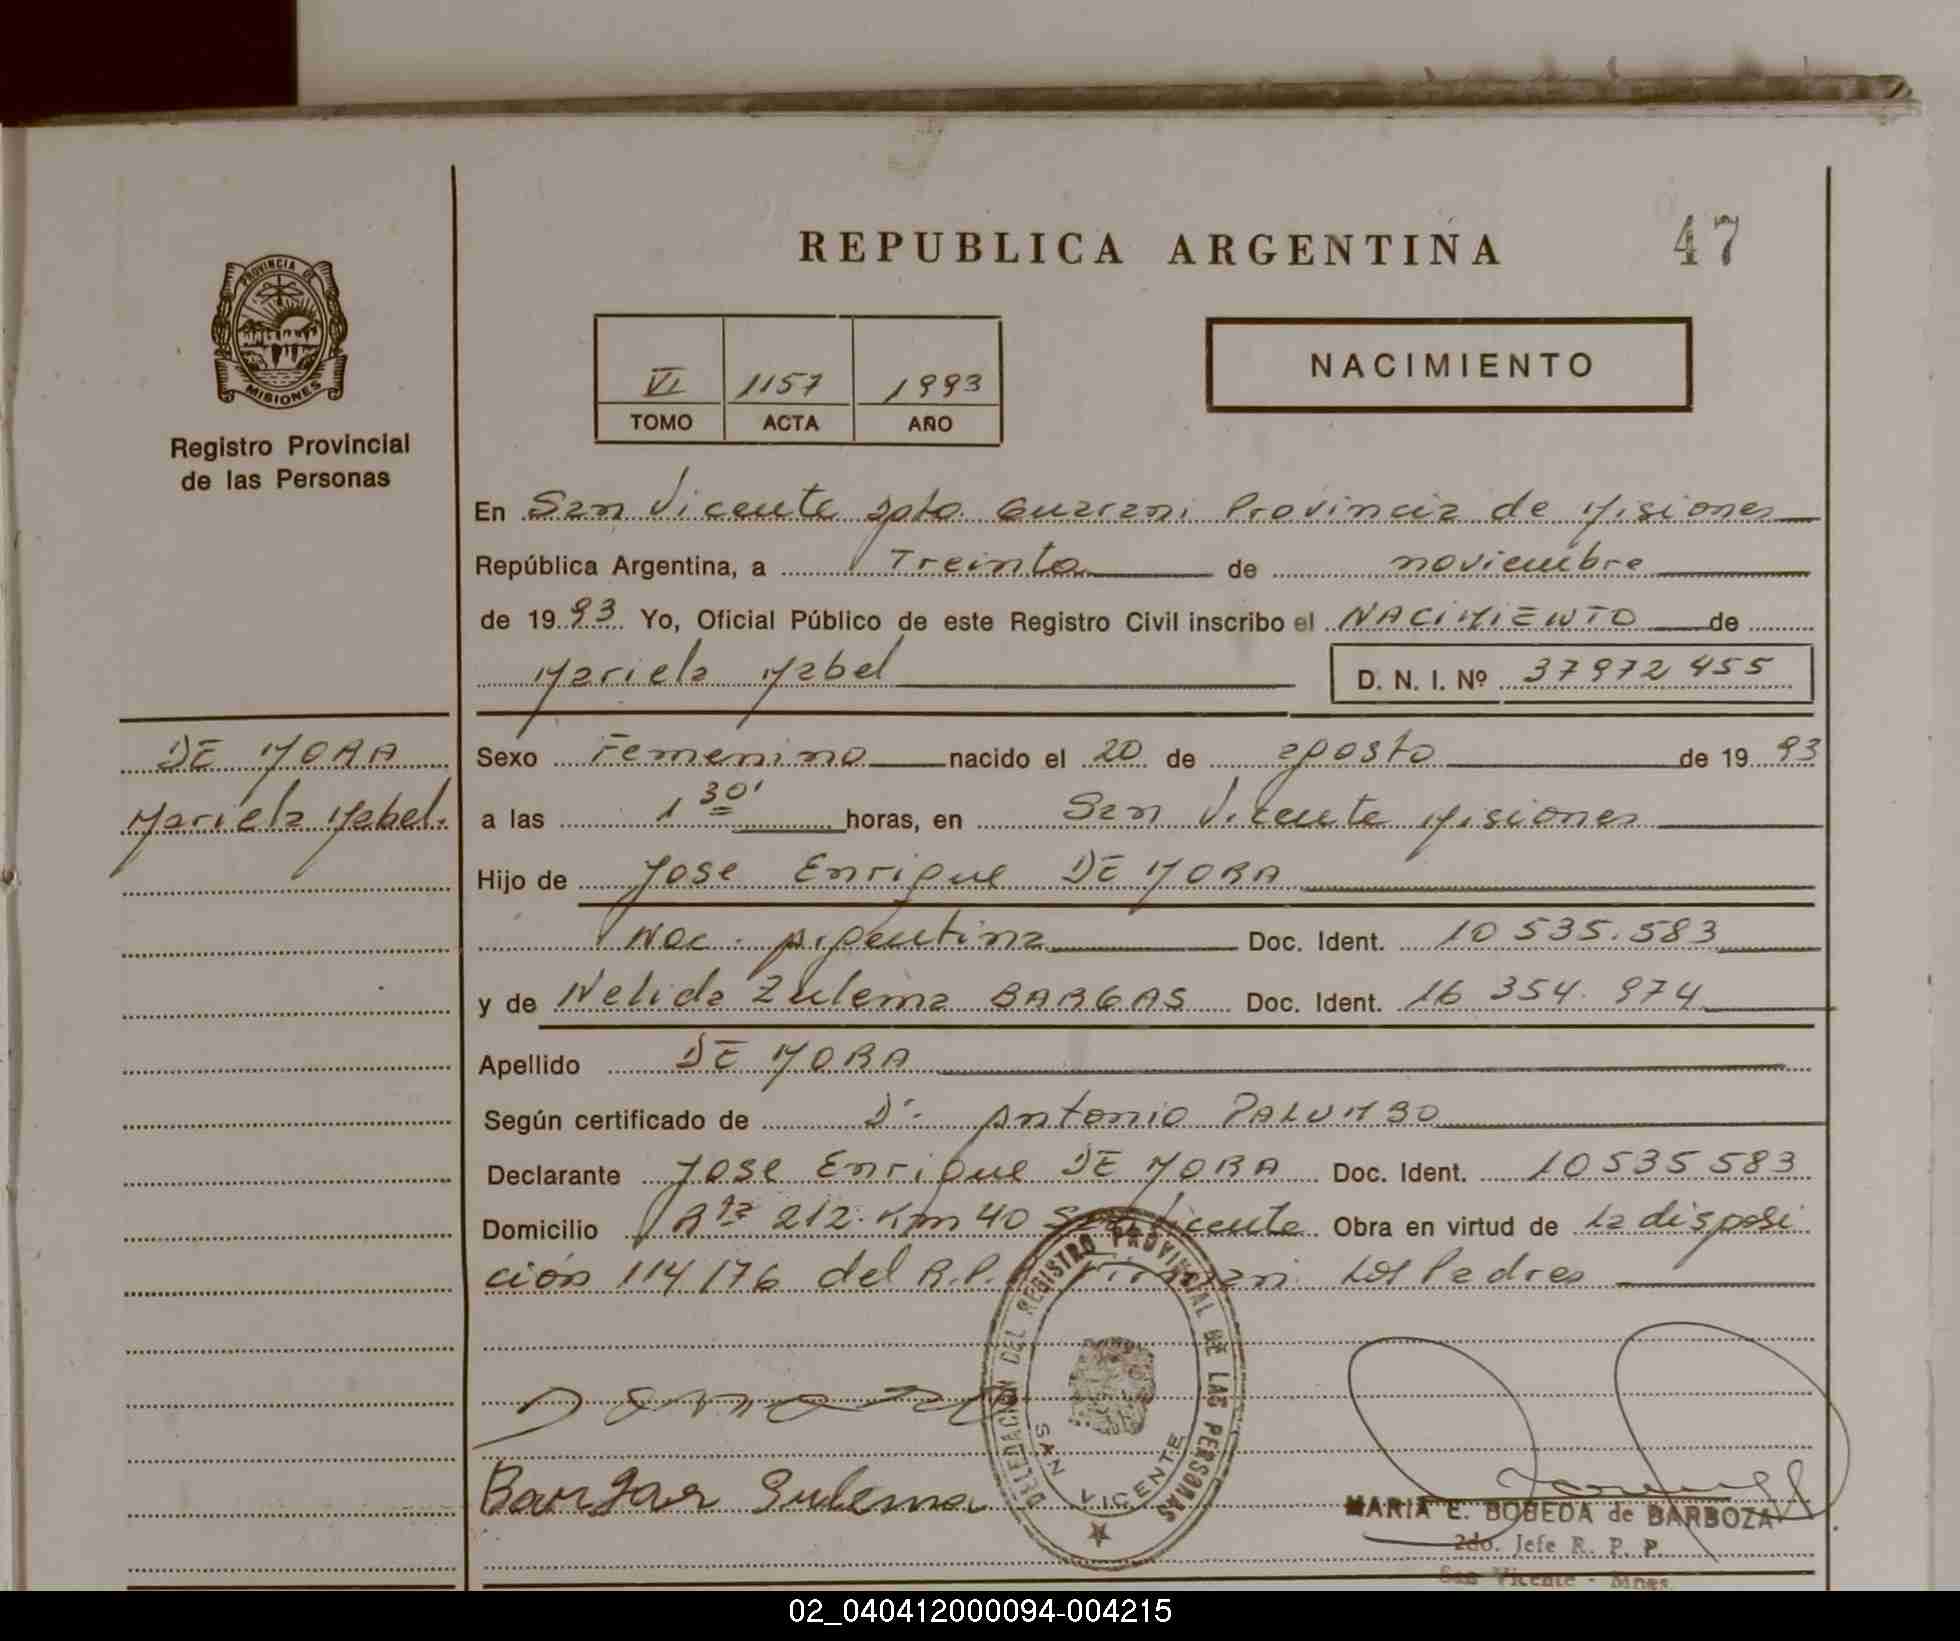 REPUBLICA ARGENTINA
47
PROVINCIA DE
MISIONES
Registro Provincial
de las Personas
VI 1157 1993
TOMO ACTA AÑO
NACIMIENTO
En San Vicente Dpto. Guarani Provincia de Misiones
República Argentina, a Treinta de noviembre
de 19 93 Yo, Oficial Público de este Registro Civil inscribo el NACIMIENTO de
Mariela Mabel D. N. I. Nº 37972 455
DE MORA
Mariela Mabel.
Sexo Femenino nacido el 20 de agosto de 19 93
a las 1 30' horas, en San Vicente Misiones
Hijo de Jose Enrique DE MORA
Nac. Argentina Doc. Ident. 10 535.583
y de Nelida Zulema BARGAS Doc. Ident. 16 354. 974
Apellido DE MORA
Según certificado de Dr. Antonio PALUMBO
Declarante Jose Enrique DE MORA Doc. Ident. 10 535 583
Domicilio Rta 212. Km 40 San Vicente Obra en virtud de la disposi
ción 114/76 del R.P. Firman Los Padres
DELEGACION DEL REGISTRO PROVINCIAL DE LAS PERSONAS
SAN VICENTE
Bargas Sulema
MARIA E. BOBEDA de BARBOZA
2do. Jefe R. P. P.
San Vicente - Mnes.
02_040412000094-004215